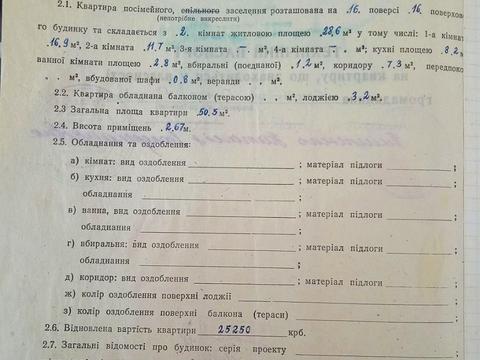 2.1. Квартира посімейного, спільного заселення розташована на 16. поверсі 16. поверхово-
(непотрібне викреслити)
го будинку та складається з 2. кімнат житловою площею 28,6 м², у тому числі: 1-а кімнат
16,9 м², 2-а кімната 11,7 м², 3-я кімната –. м², 4-а кімната –. м²; кухні площею 8,2
ванної кімнати площею 2,8 м², вбиральні (поєднаної) 1,2 м², коридору 7,3 м², передпоко
. . м², вбудованої шафи 0.8 м², веранди . . м².
2.2. Квартира обладнана балконом (терасою) . . м², лоджією 3,2 м².
2.3 Загальна площа квартири 50.5 м².
2.4. Висота приміщень 2,67 м.
2.5. Обладнання та оздоблення:
а) кімнат: вид оздоблення ; матеріал підлоги ;
б) кухня: вид оздоблення ; матеріал підлоги ;
обладнання ;
в) ванна, вид оздоблення ; матеріал підлоги ;
обладнання ;
г) вбиральня: вид оздоблення ; матеріал підлоги ;
обладнання ;
д) коридор: вид оздоблення ; матеріал підлоги ;
ж) колір оздоблення поверхні лоджії ;
з) колір оздоблення поверхні балкона (тераси)
2.6. Відновлена вартість квартири 25250 крб.
2.7. Загальні відомості про будинок: серія проекту